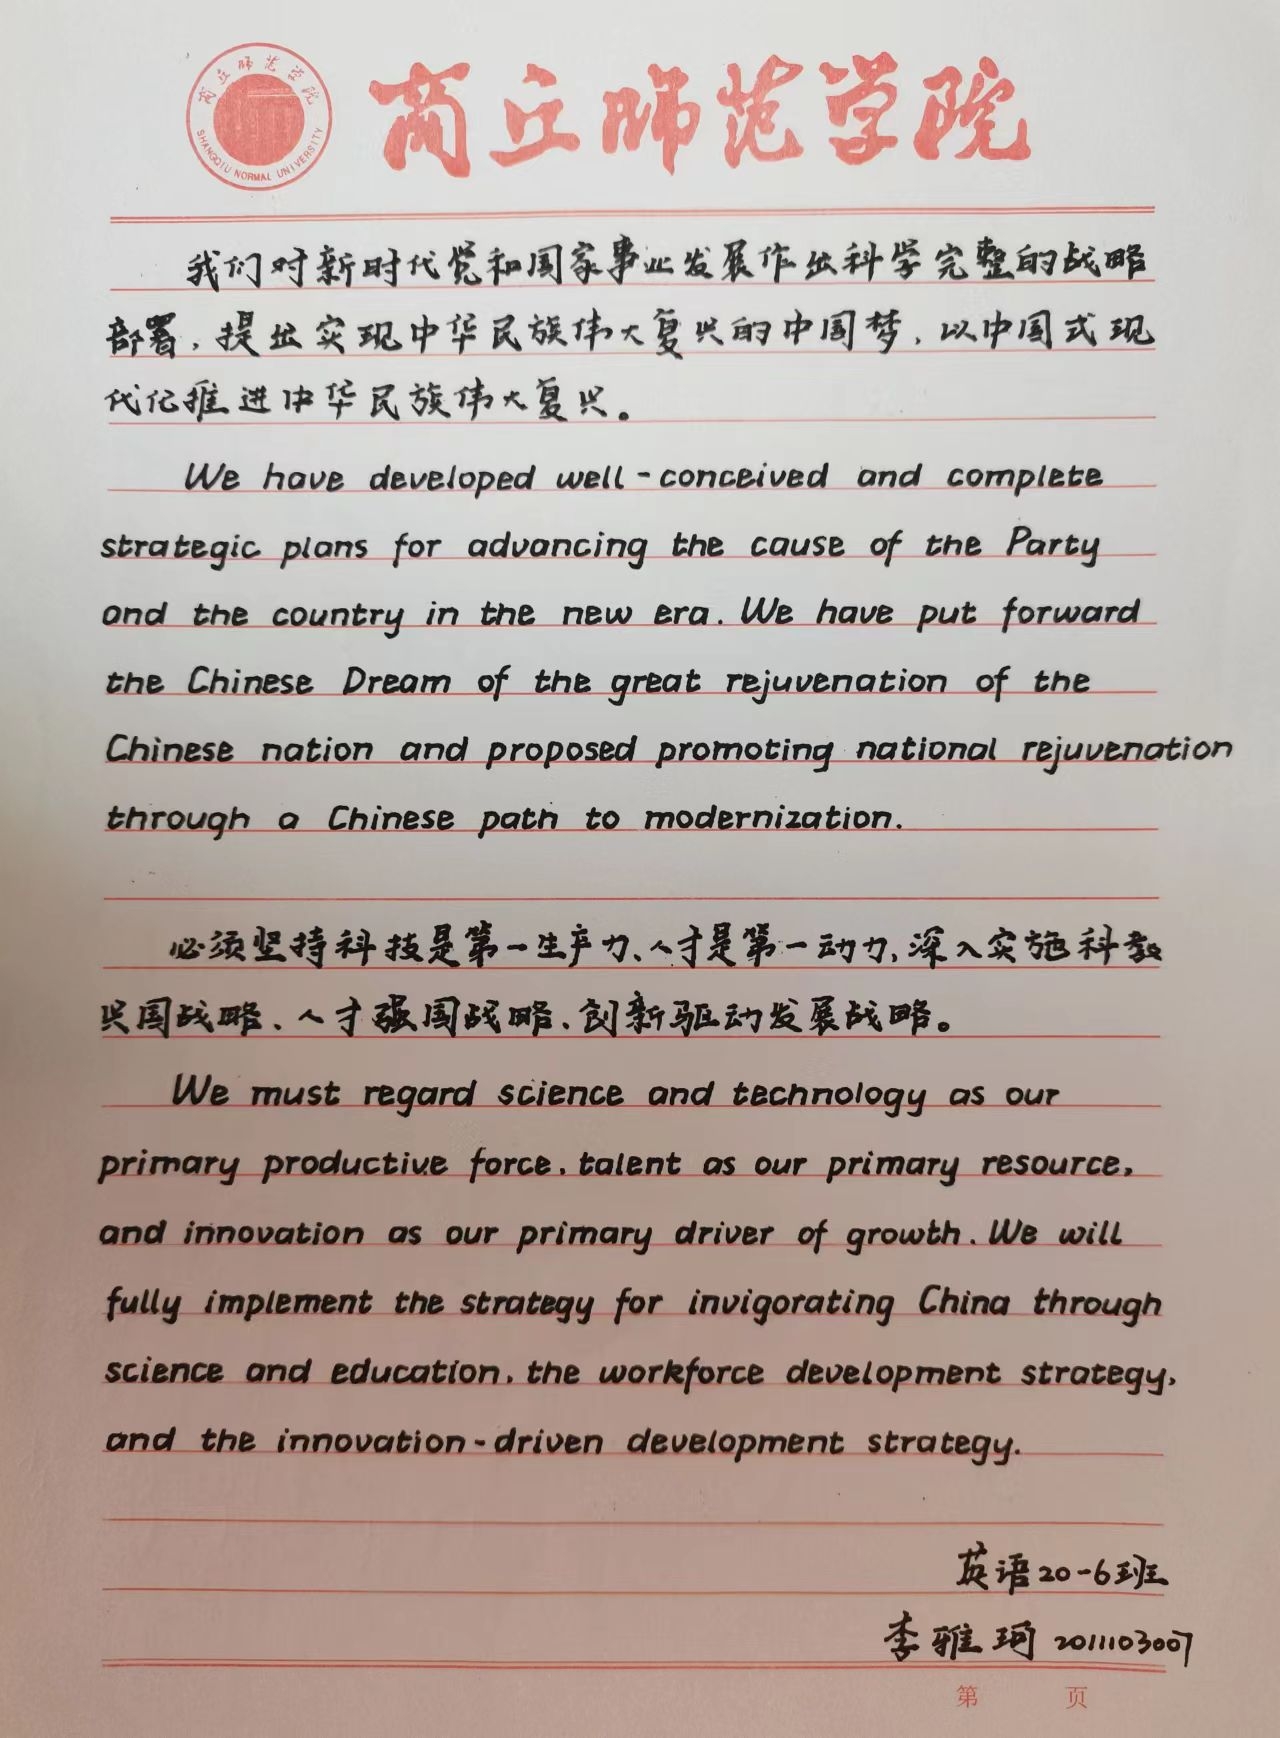 商丘师范学院
SHANGQIU NORMAL UNIVERSITY
商丘师范学院
我们对新时代党和国家事业发展作出科学完整的战略
部署，提出实现中华民族伟大复兴的中国梦，以中国式现
代化推进中华民族伟大复兴。
We have developed well-conceived and complete
strategic plans for advancing the cause of the Party
and the country in the new era. We have put forward
the Chinese Dream of the great rejuvenation of the
Chinese nation and proposed promoting national rejuvenation
through a Chinese path to modernization.
必须坚持科技是第一生产力、人才是第一动力，深入实施科教
兴国战略、人才强国战略、创新驱动发展战略。
We must regard science and technology as our
primary productive force, talent as our primary resource,
and innovation as our primary driver of growth. We will
fully implement the strategy for invigorating China through
science and education, the workforce development strategy,
and the innovation-driven development strategy.
英语20-6班
李雅珂 2011103007
第 页